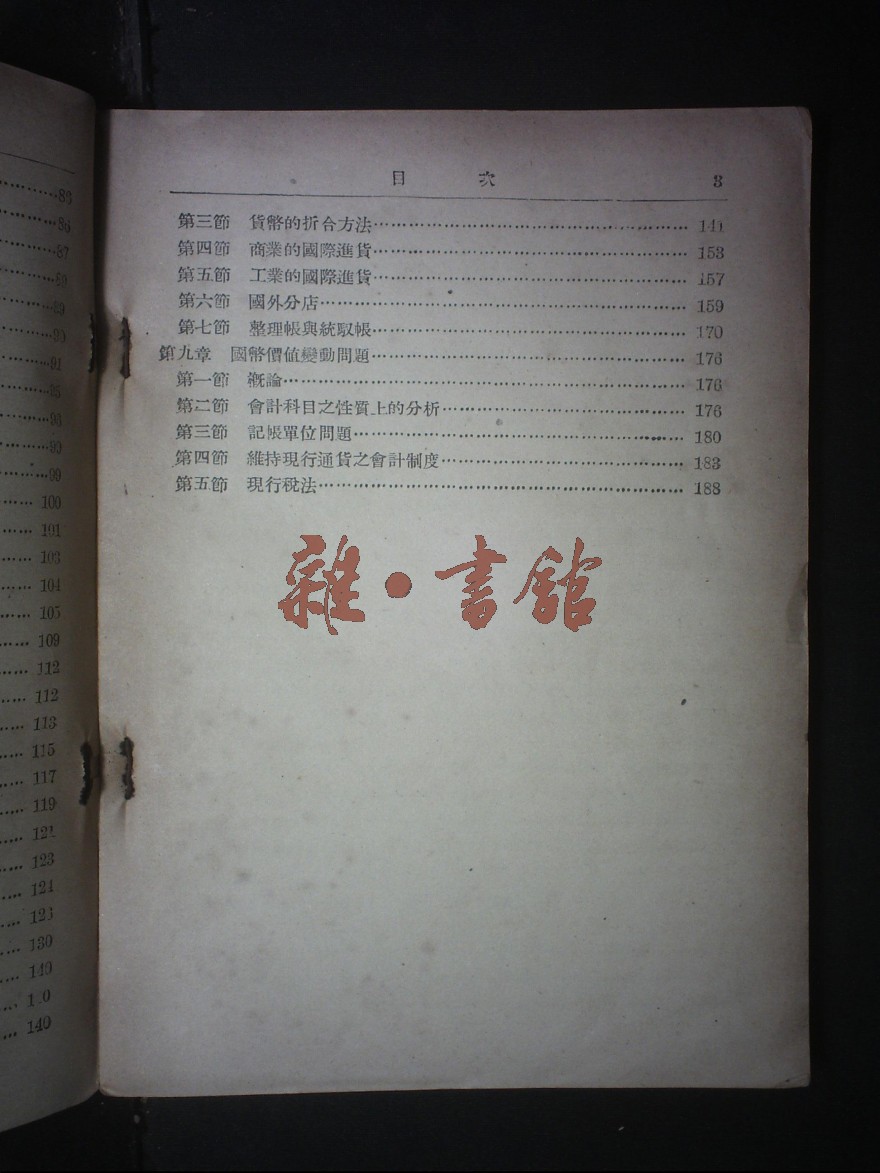 83
86
87
89
89
90
91
95
98
99
99
100
101
103
104
105
109
112
112
113
115
117
119
123
124
130
140
140
目 次 3
第三節 貨幣的折合方法 141
第四節 商業的國際進貨 153
第五節 工業的國際進貨 157
第六節 國外分店 159
第七節 整理帳與統馭帳 170
第九章 國幣價值變動問題 176
第一節 概論 176
第二節 會計科目之性質上的分析 176
第三節 記帳單位問題 180
第四節 維持現行通貨之會計制度 183
第五節 現行稅法 188
雜·書館